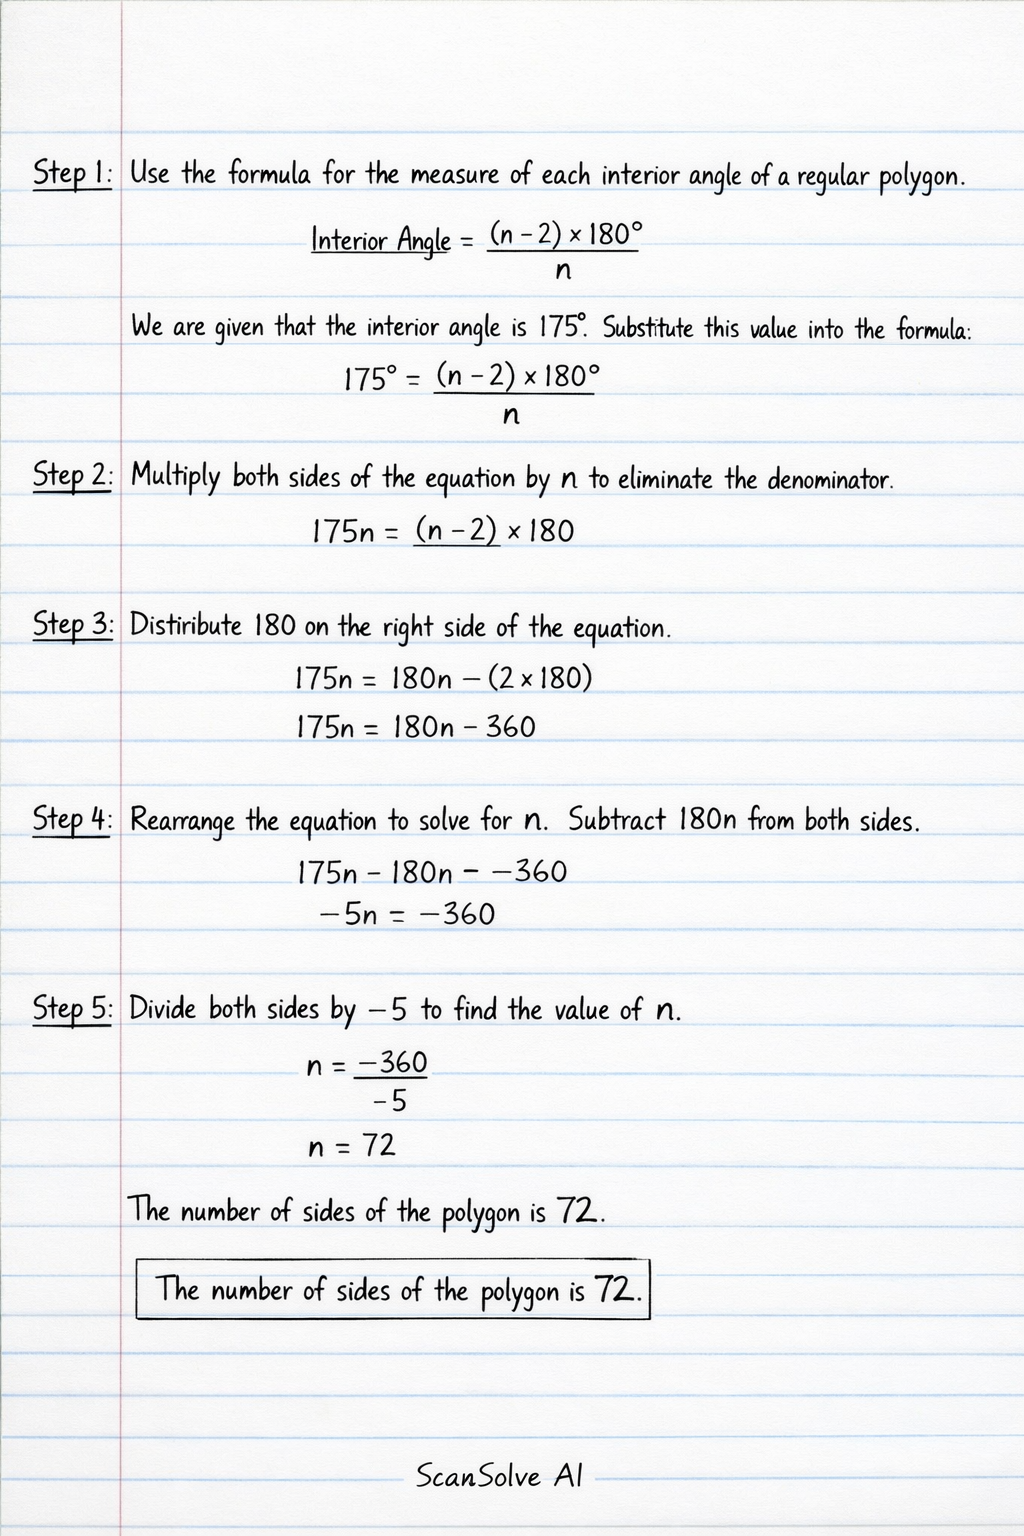 Step 1: Use the formula for the measure of each interior angle of a regular polygon.
Interior Angle = (n – 2) × 180°
n
We are given that the interior angle is 175°. Substitute this value into the formula:
175° = (n – 2) × 180°
n
Step 2: Multiply both sides of the equation by n to eliminate the denominator.
175n = (n – 2) × 180
Step 3: Distiribute 180 on the right side of the equation.
175n = 180n – (2 × 180)
175n = 180n – 360
Step 4: Rearrange the equation to solve for n. Subtract 180n from both sides.
175n – 180n – –360
–5n = –360
Step 5: Divide both sides by –5 to find the value of n.
n = –360
–5
n = 72
The number of sides of the polygon is 72.
The number of sides of the polygon is 72.
ScanSolve AI